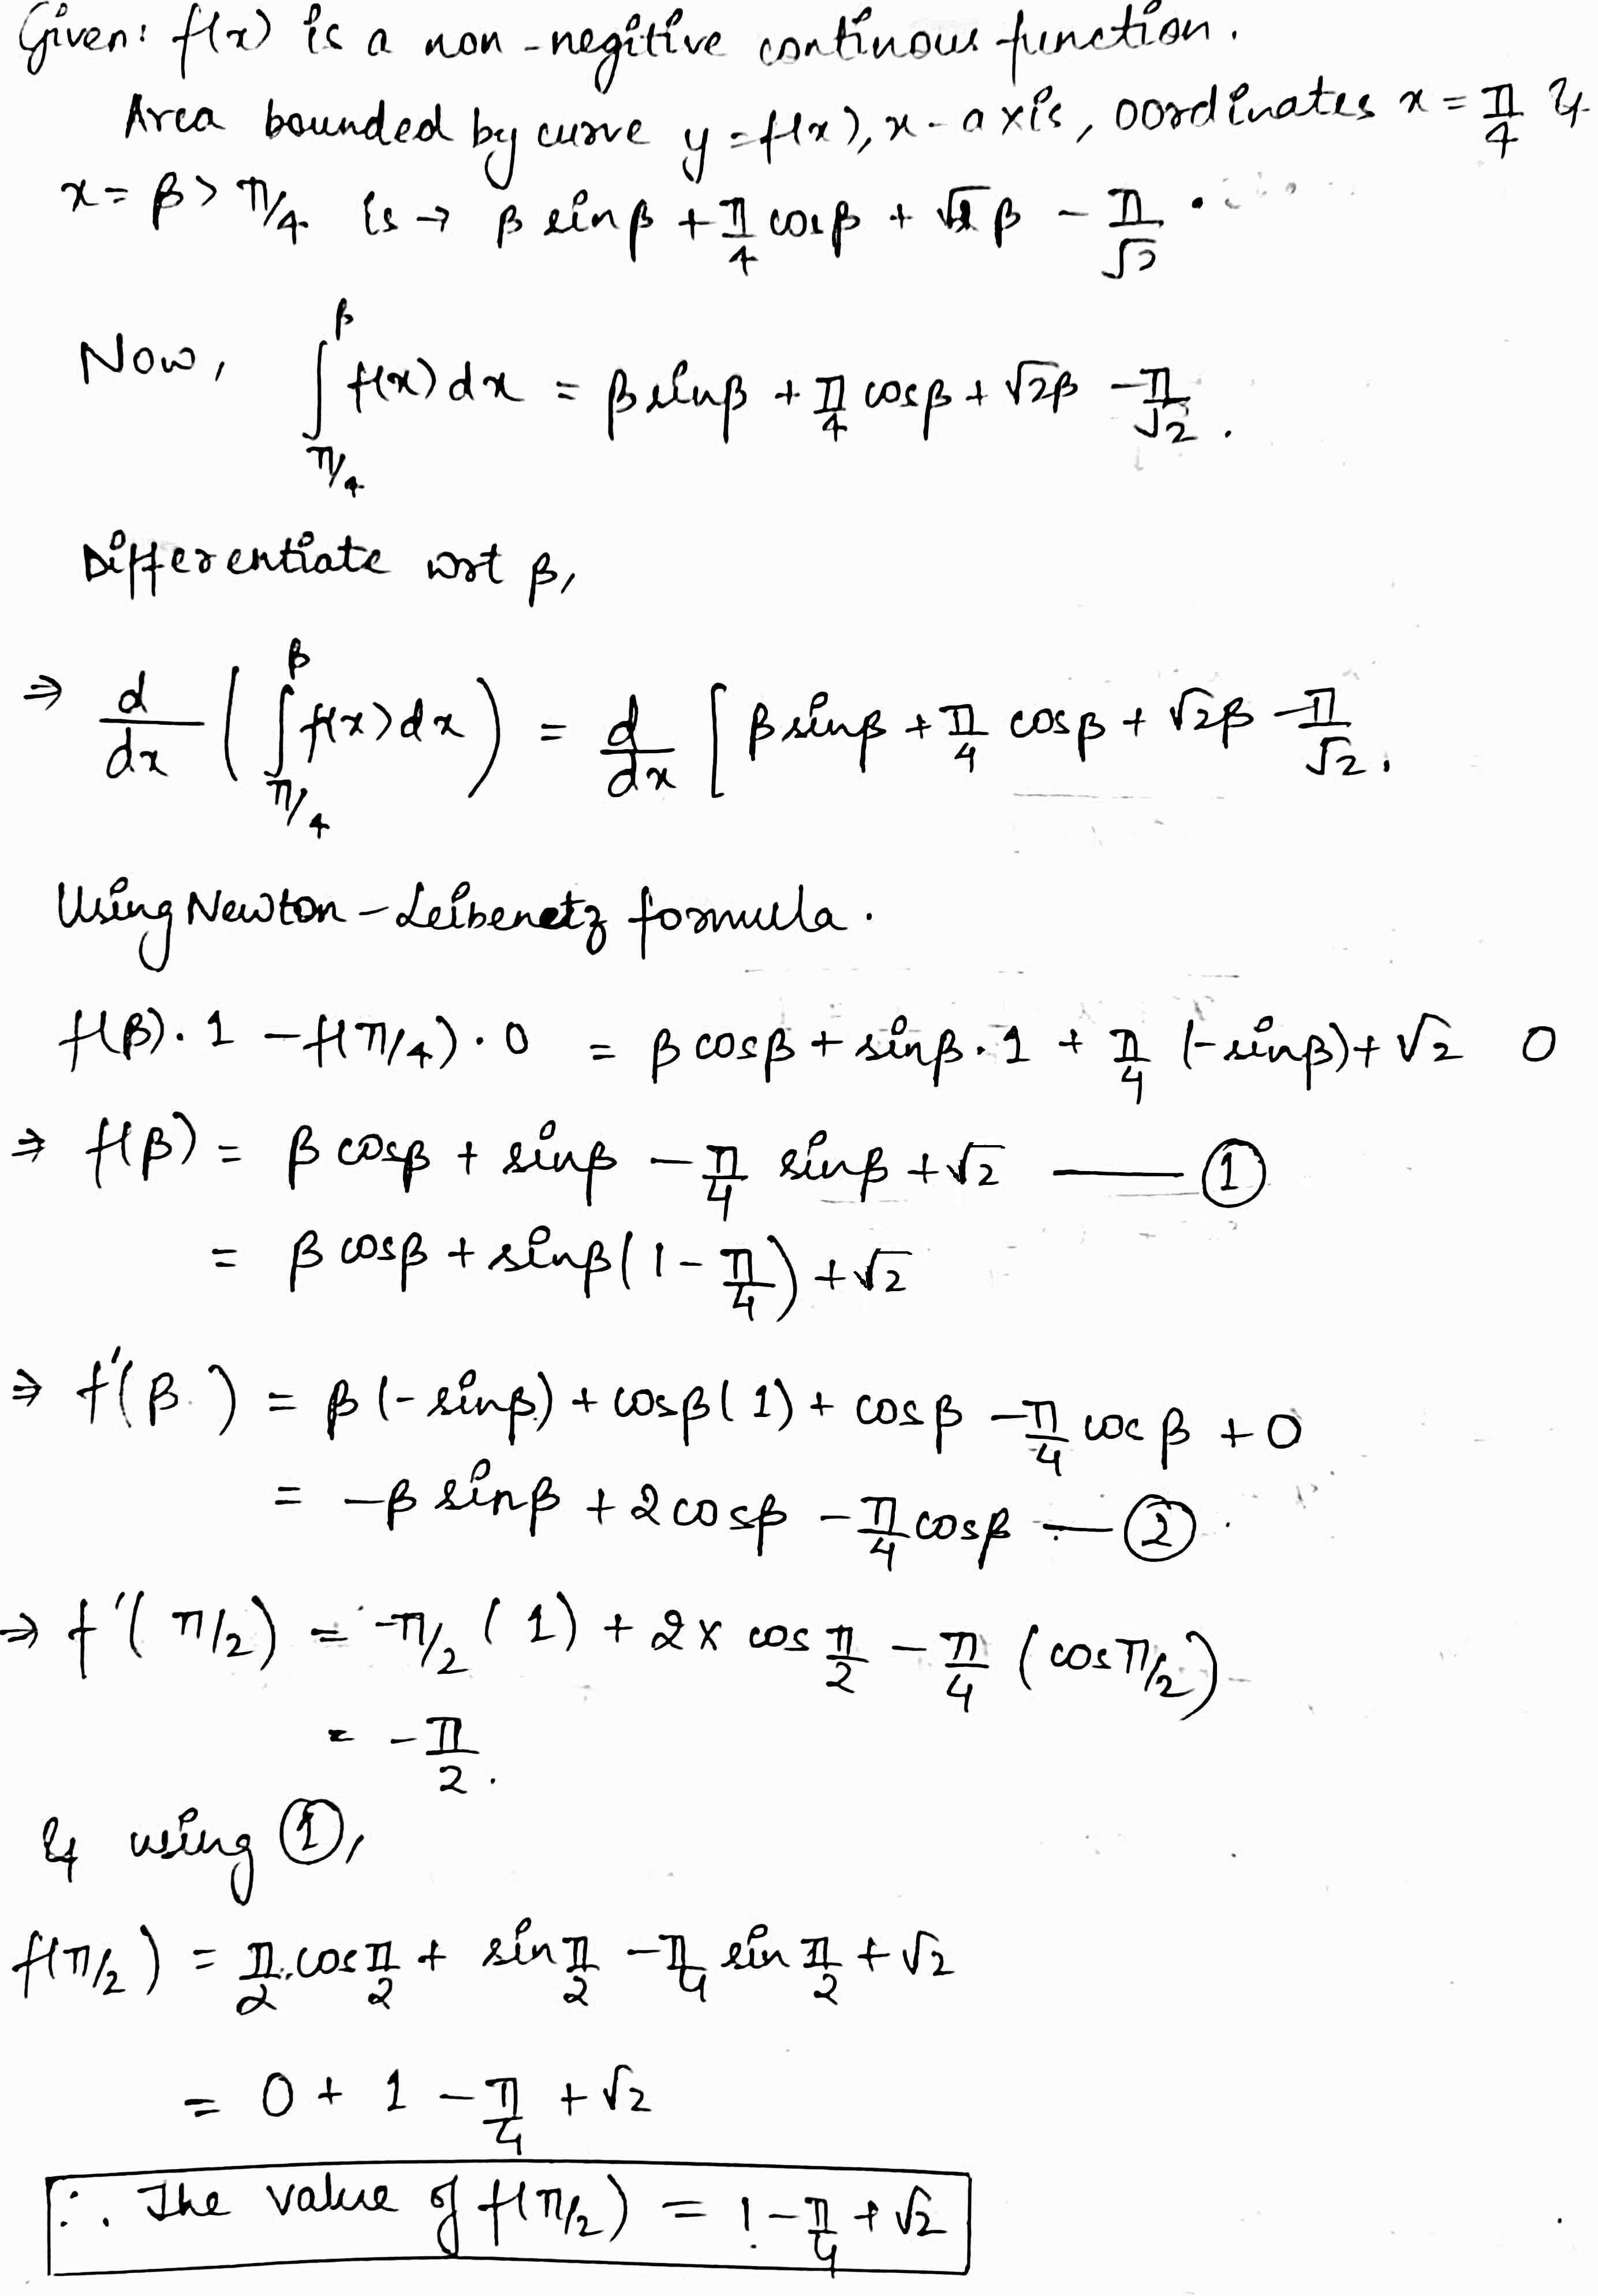 Given: f(x) is a non-negitive continous function.
Area bounded by curve y = f(x), x-axis, oordinates x = π/4 &
x = β > π/4 is → β sinβ + π/4 cosβ + √2 β - π/√2 .
Now, ∫_{π/4}^{β} f(x) dx = β sinβ + π/4 cosβ + √2β - π/√2 .
Differentiate wrt β,
⇒ d/dx ( ∫_{π/4}^{β} f(x) dx ) = d/dx [ β sinβ + π/4 cosβ + √2β - π/√2 .
Using Newton-Leibenetz formula.
f(β).1 - f(π/4).0 = β cosβ + sinβ.1 + π/4 (-sinβ) + √2 0
⇒ f(β) = β cosβ + sinβ - π/4 sinβ + √2 —— ①
= β cosβ + sinβ(1 - π/4) + √2
⇒ f'(β) = β(-sinβ) + cosβ(1) + cosβ - π/4 cosβ + 0
= -β sinβ + 2cosβ - π/4 cosβ — ② .
⇒ f'(π/2) = -π/2 (1) + 2 x cos π/2 - π/4 (cosπ/2)
= -π/2 .
& using ①,
f(π/2) = π/2 . cos π/2 + sin π/2 - π/4 sin π/2 + √2
= 0 + 1 - π/4 + √2
∴ The value of f(π/2) = 1 - π/4 + √2